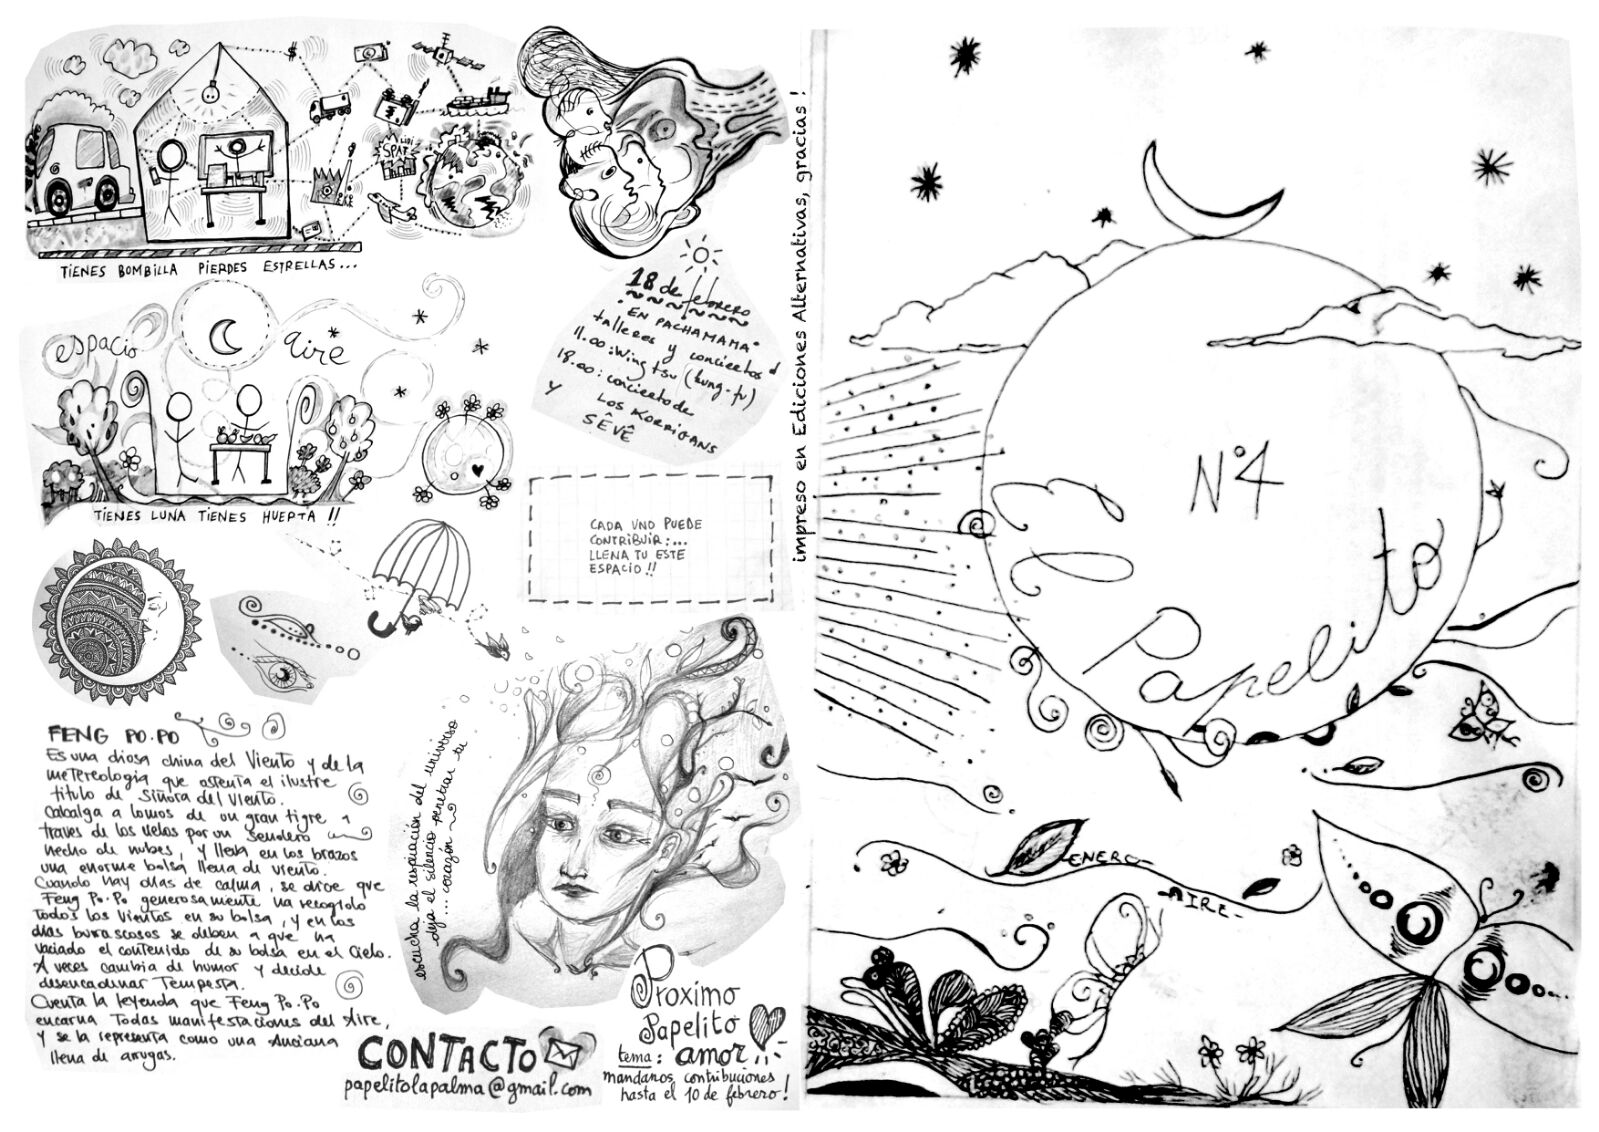 $
LIDL
SPAR
TIENES BOMBILLA PIERDES ESTRELLAS...
espacio aire
TIENES LUNA TIENES HUERTA !!
18 de febrero
EN PACHAMAMA
talleres y conciertos
11.00: Wing tsu (kung-fu)
18.00: concierto de
LOS KORRIGANS
y SÊVÊ
CADA UNO PUEDE
CONTRIBUIR:...
LLENA TU ESTE
ESPACIO!!
FENG PO.PO
Es una diosa china del Viento y de la
metereologia que ostenta el ilustre
titulo de Señora del Viento.
Cabalga a lomos de un gran tigre a
traves de los cielos por un sendero
hecho de nubes, y lleva en los brazos
una enorme bolsa llena de viento.
Cuando hay dias de calma, se dice que
Feng Po.Po generosamente ha recogido
Todos los vientos en su bolsa, y en los
dias burrascosos se deben a que ha
vaciado el contenido de su bolsa en el Cielo.
A veces cambia de humor y decide
desencadenar Tempesta.
Cuenta la leyenda que Feng Po.Po
encarna Todas manifestaciones del Aire,
y se la representa como una Anciana
llena de arrugas.
escucha la respiración del universo
deja el silencio penetrar tu
... corazón
CONTACTO
papelitolapalma@gmail.com
Próximo
Papelito
tema: amor
mandanos contribuciones
hasta el 10 de febrero!
impreso en Ediciones Alternativas, gracias !
N°4
El Papelito
-ENERO-
-AIRE-